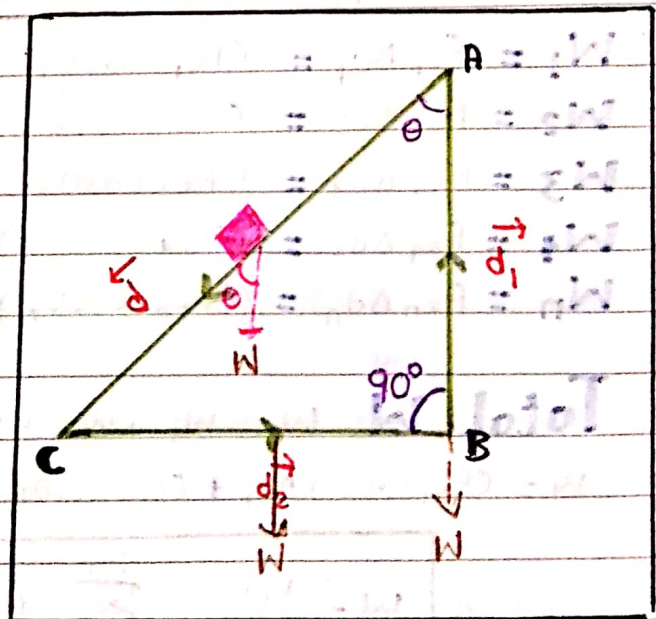 A
θ
d⃗₁
d⃗
θ
W
90°
C
B
d⃗₂
W
W